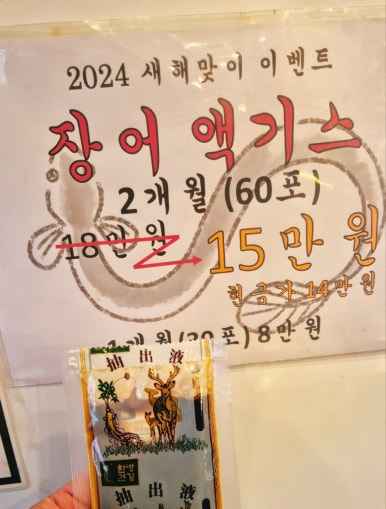 2024 새해맞이 이벤트
장어액기스
2개월 (60포)
18만원
15만원
현금가 14만원
1개월 (30포) 8만원
抽出液
한방
건강
抽出液